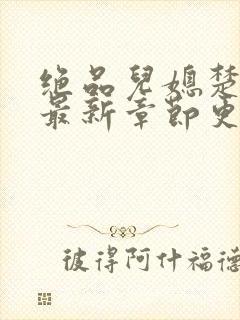 绝品儿媳楚
最新章节更
彼得阿什福德